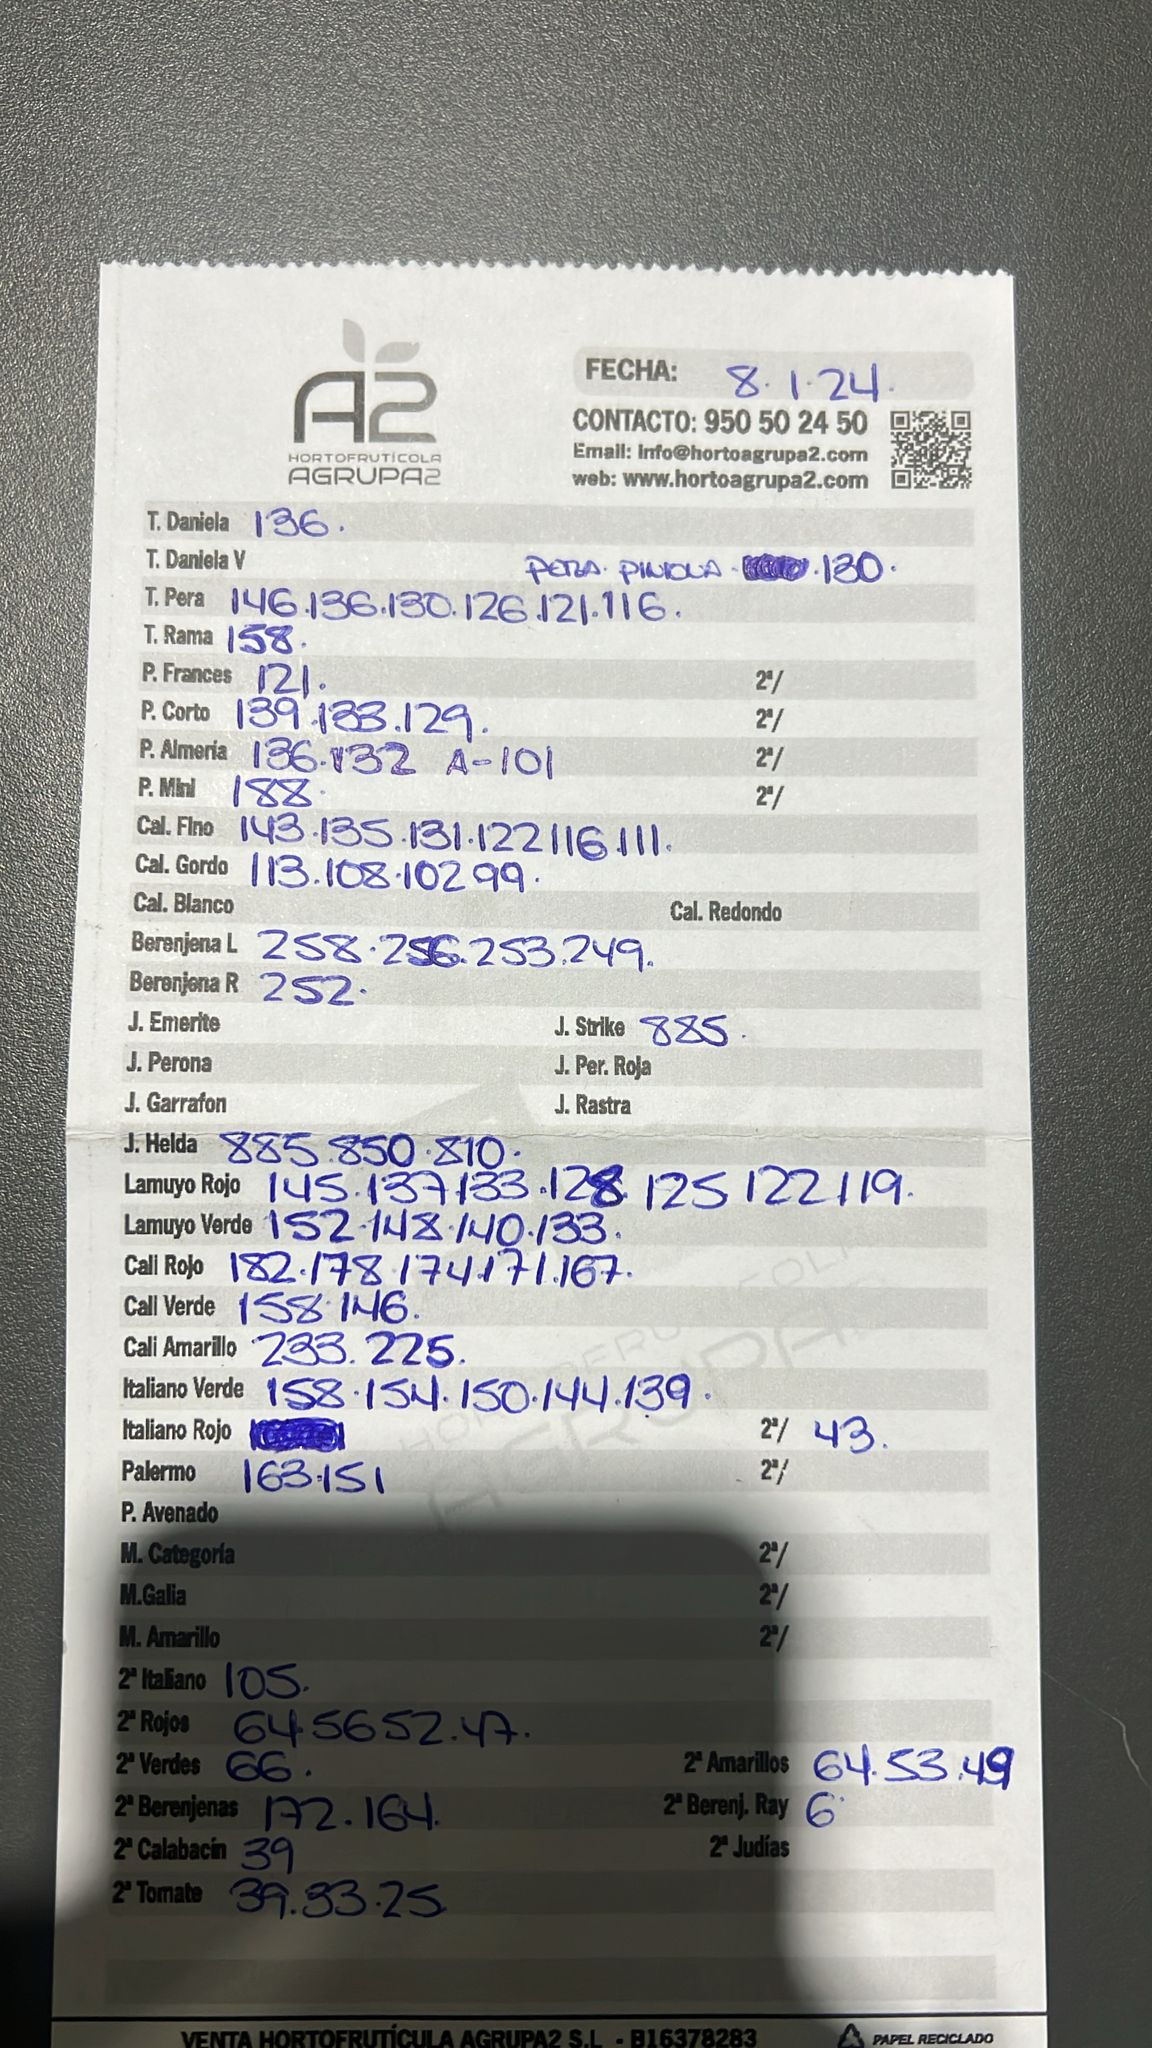 A2
HORTOFRUTÍCOLA
AGRUPA2
FECHA: 8.1.24.
CONTACTO: 950 50 24 50
Email: info@hortoagrupa2.com
web: www.hortoagrupa2.com
T. Daniela 136.
T. Daniela V PERA PINTONA 130.
T. Pera 146.136.130.126.121.116.
T. Rama 158.
P. Frances 121. 2ª/
P. Corto 139.133.129. 2ª/
P. Almería 136.132 A-101 2ª/
P. Mini 188. 2ª/
Cal. Fino 143.135.131.122 116.111.
Cal. Gordo 113.108.102 99.
Cal. Blanco Cal. Redondo
Berenjena L 258.256.253.249.
Berenjena R 252.
J. Emerite J. Strike 885.
J. Perona J. Per. Roja
J. Garrafon J. Rastra
J. Helda 885.850.810.
Lamuyo Rojo 145.137.133.128 125 122 119.
Lamuyo Verde 152.148.140.133.
Cali Rojo 182.178.174.171.167.
Cali Verde 158.146.
Cali Amarillo 233.225.
Italiano Verde 158.154.150.144.139.
Italiano Rojo 2ª/ 43.
Palermo 163.151 2ª/
P. Avenado
M. Categoría 2ª/
M.Galia 2ª/
M. Amarillo 2ª/
2ª Italiano 105.
2ª Rojos 64.56 52.47.
2ª Verdes 66. 2ª Amarillos 64.53.49
2ª Berenjenas 172.164. 2ª Berenj. Ray 6
2ª Calabacín 39 2ª Judías
2ª Tomate 39.33.25
VENTA HORTOFRUTÍCULA AGRUPA2 S.L - B16378283 PAPEL RECICLADO